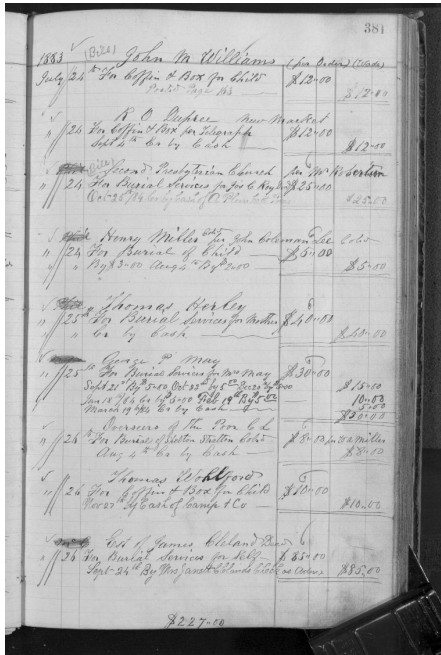 381
1883 (Bill) John M Williams (per Order) (Wade)
July 24th For Coffin & Box for Child $12.00
Posted Page 163
$12.00
R O Dupree New Market
" 26 For Coffin & Box per Telegraph $12.00
Sept 4th Cr by Cash $12.00
Second Presbyterian Church per Mr Robertson
" 24 For Burial Services for $25.00
$25.00
Henry Miller for John Coleman Lee Cold
" 24 For Burial of Child $5.00
" By $3.00 Aug 4th By $2.00 $5.00
Thomas Kerley
" 25th For Burial Services for Mother $40.00
" Cr by Cash $40.00
George P May
" 25th For Burial Services for Mrs May $30.00
Sept 21st By 5.00 Oct 22nd by 5.00 Dec 20 by 5.00 $15.00
Jan 18th/84 Cr by 5.00 Feb 19th By 5.00 10.00
March 19th/84 Cr by Cash 5.00
$30.00
Overseers of the Poor
" 26th For Burial of Stretton Cold $8.00 per Miller
Aug 4th Cr by Cash $8.00
Thomas Wohlford
" 26 For Coffin & Box for Child $10.00
By Cash of Camp & Co $10.00
Est of James Cleland Decd
" 26 For Burial Services for Self $85.00
Sept 24th By Mrs Janet Clelands Check $85.00
$227.00